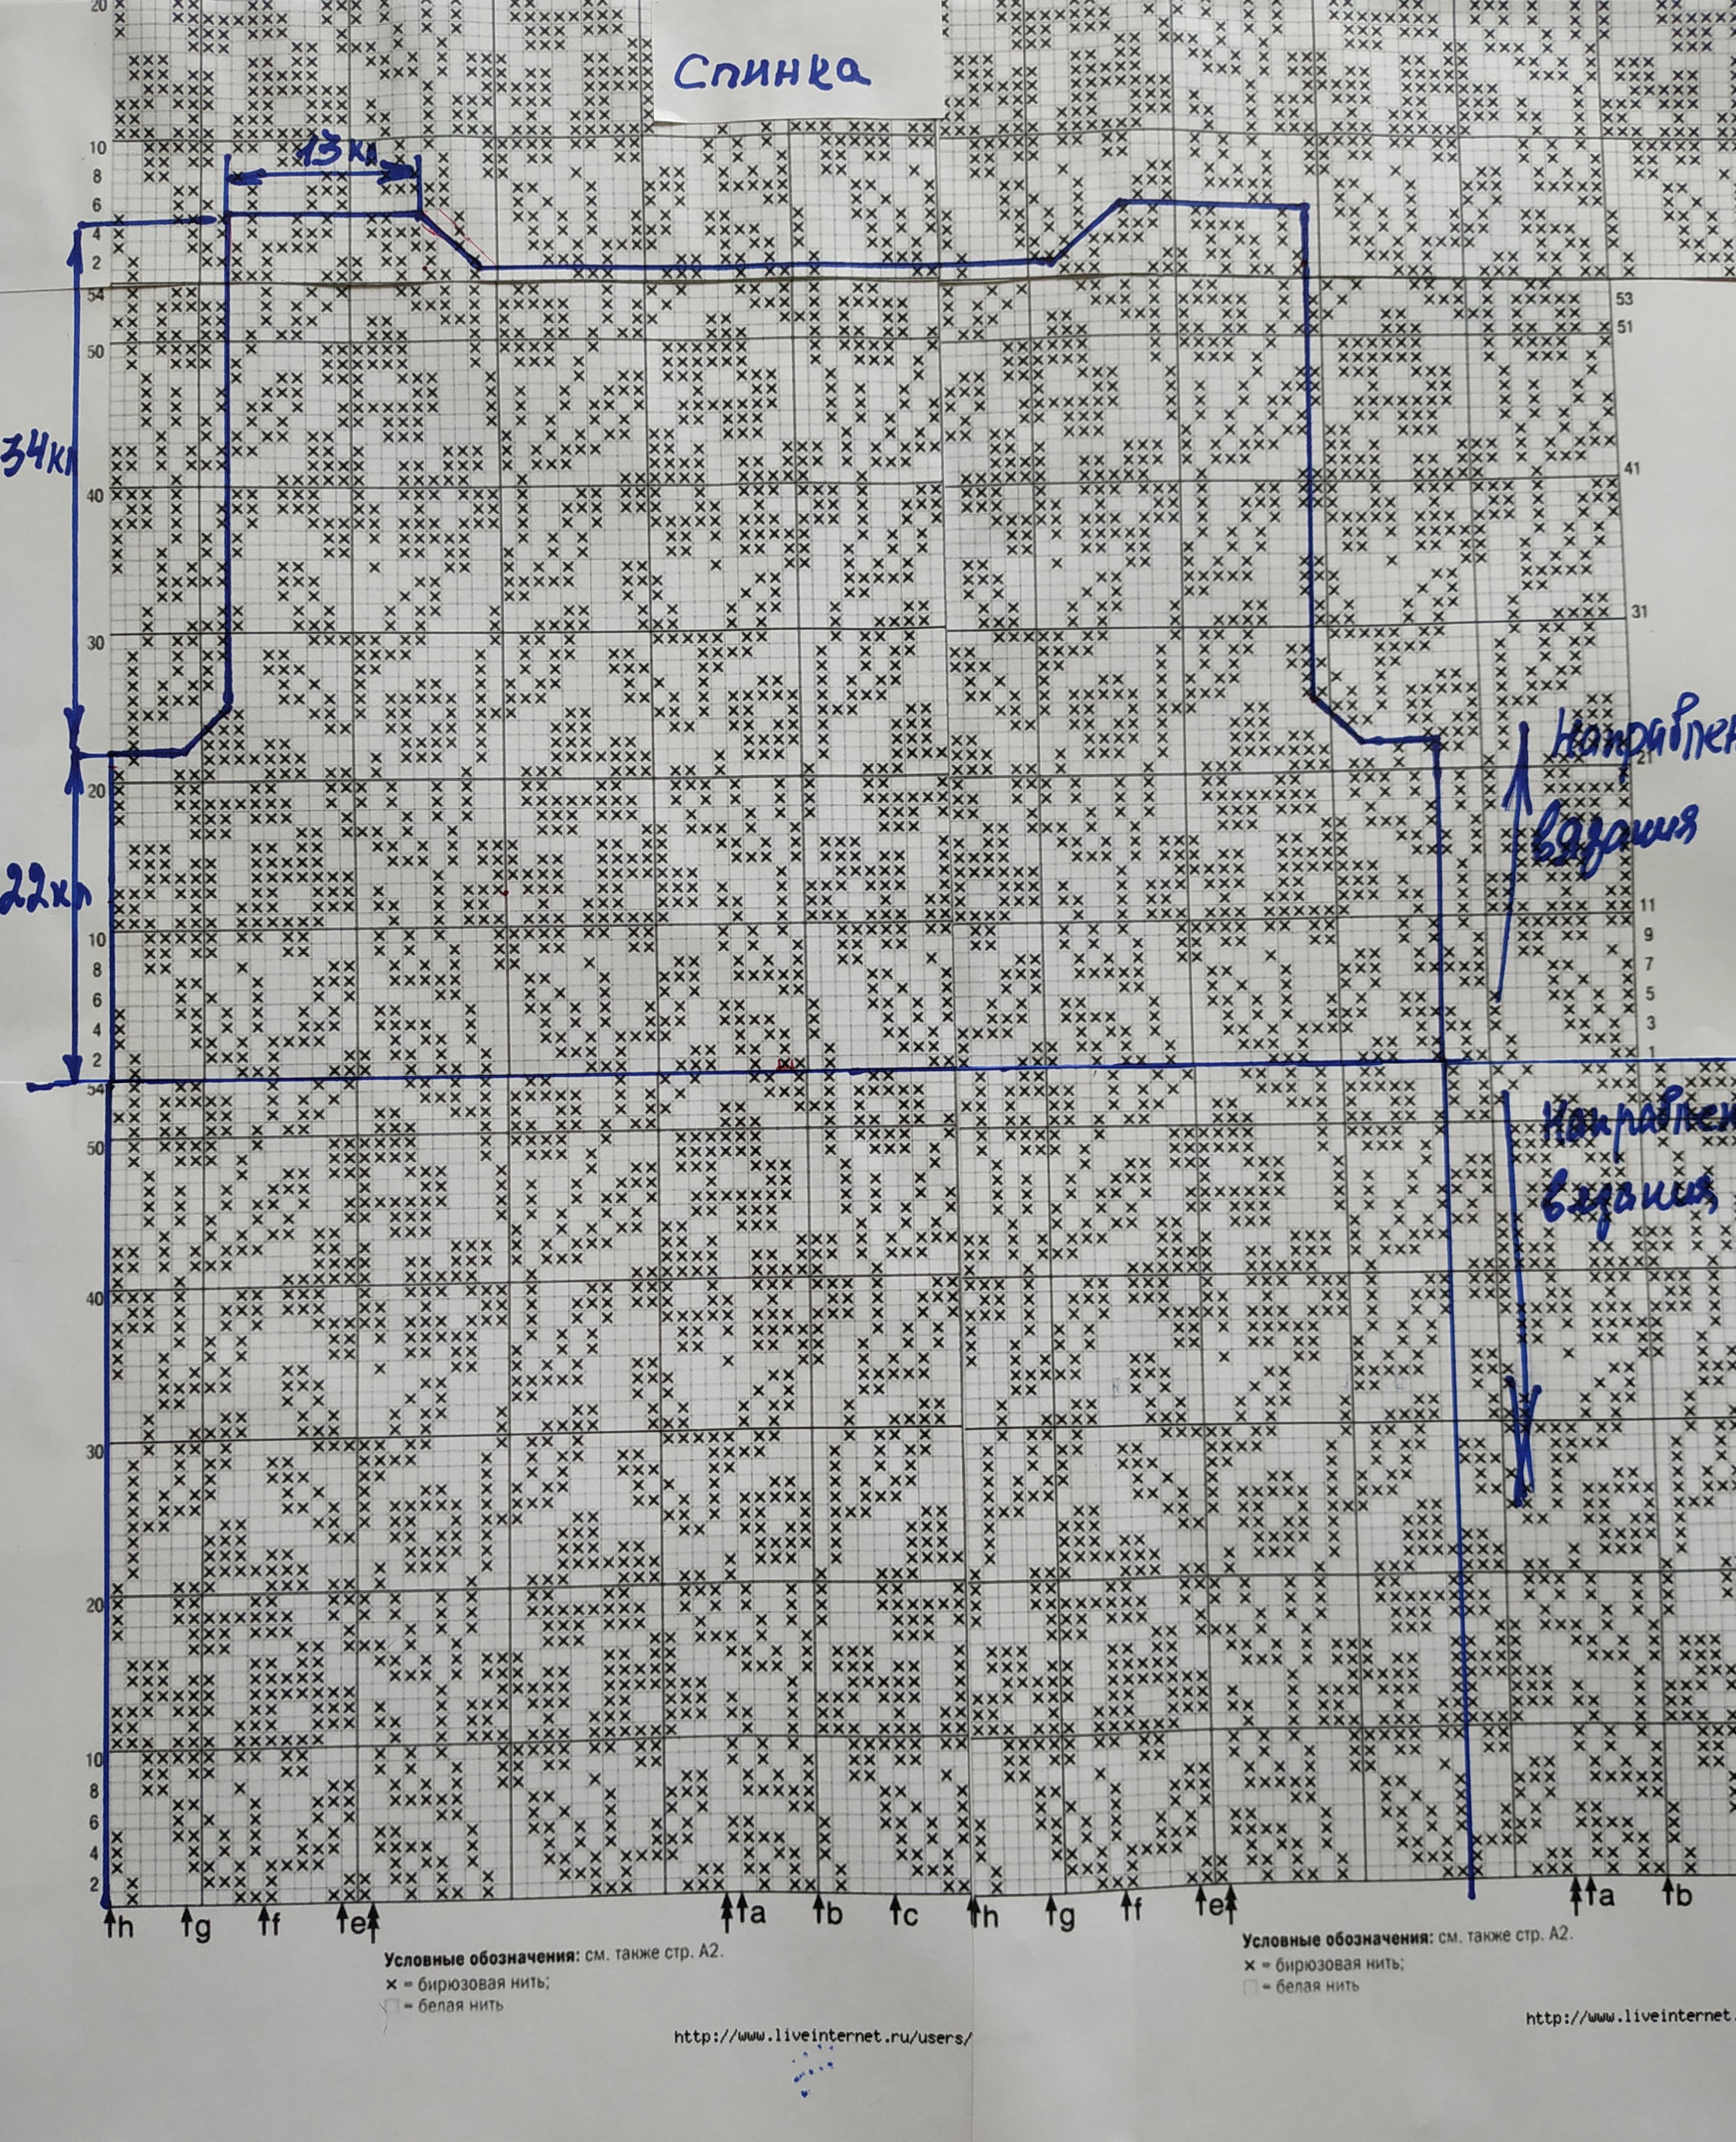 20
Спинка
10
13кл
8
6
4
2
54
53
51
50
34кл
41
40
31
30
21
20
вязания
22кл
11
10
9
8
7
6
5
4
3
2
1
54
50
вязания
40
30
20
10
8
6
4
2
h g f e a b c h g f e a b
Условные обозначения: см. также стр. А2.
× = бирюзовая нить;
□ = белая нить
http://www.liveinternet.ru/users/
Условные обозначения: см. также стр. А2.
× = бирюзовая нить;
□ = белая нить
http://www.liveinternet.